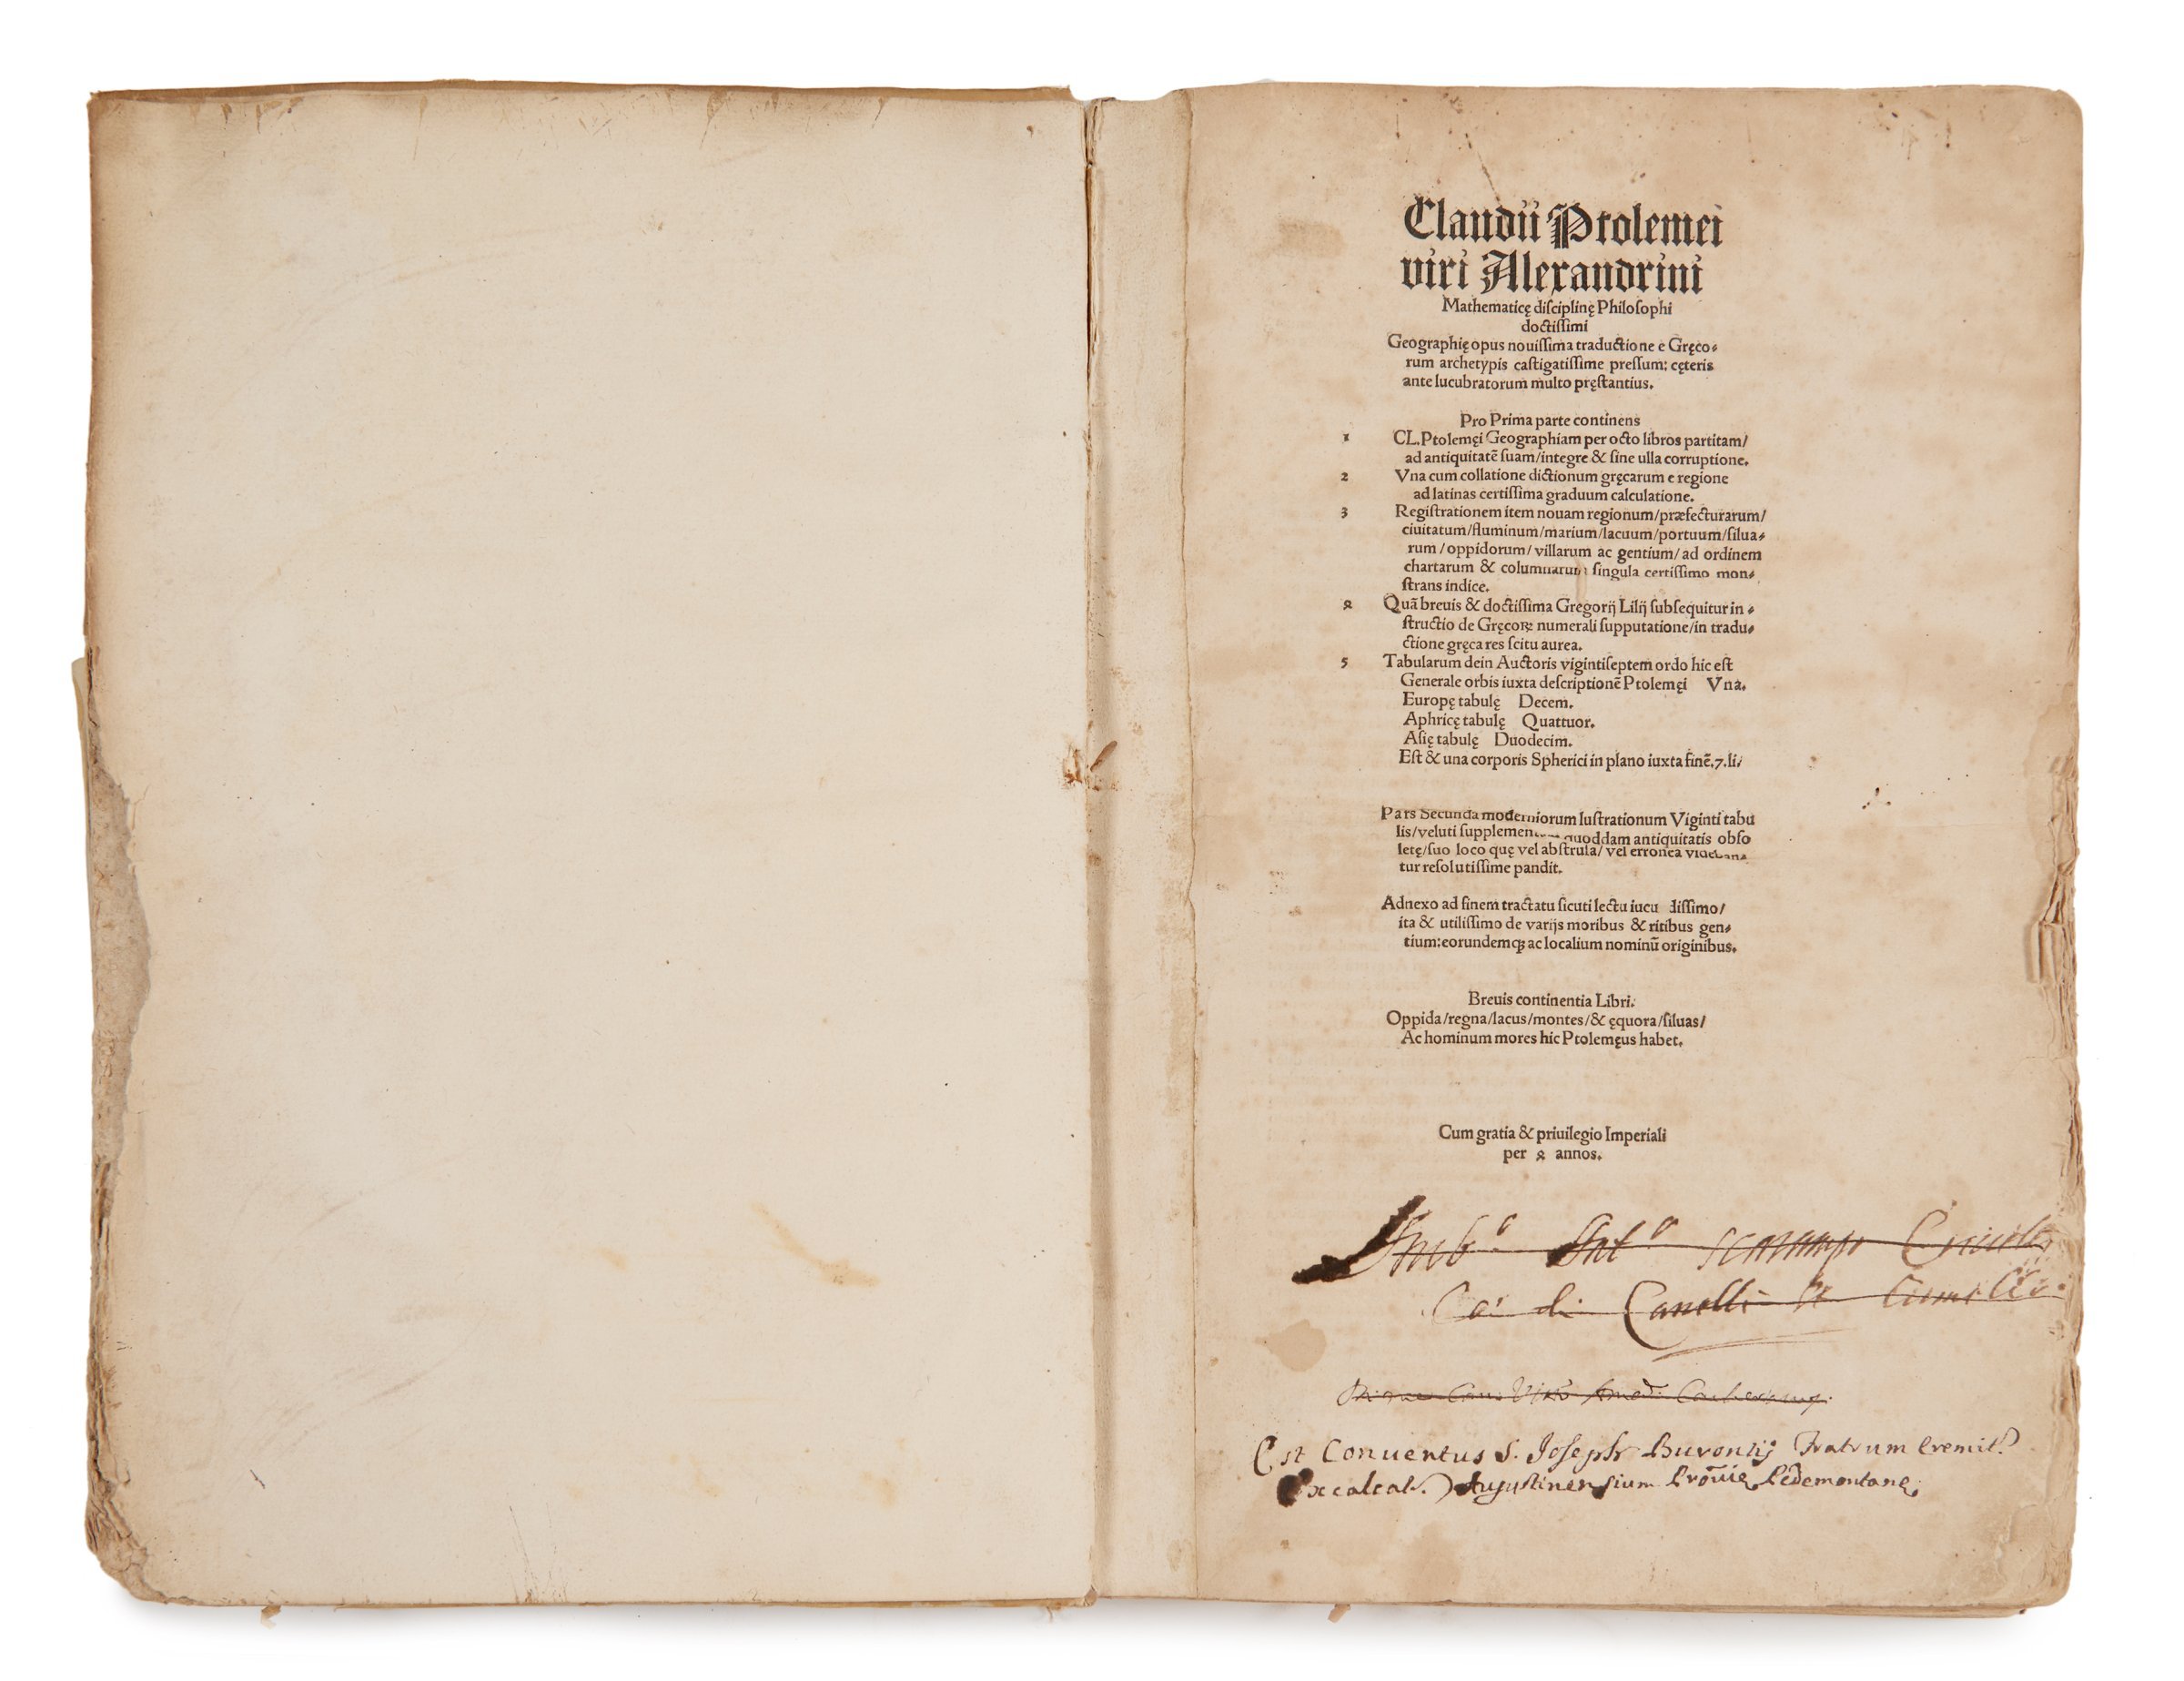 Claudii Ptolemei
viri Alexandrini
Mathematicę diſciplinę Philoſophi
doctiſſimi
Geographię opus nouiſſima traductione e Gręco⸗
rum archetypis caſtigatiſſime preſſum: cęteris
ante lucubratorum multo pręſtantius.
Pro Prima parte continens
1 CL. Ptolemęi Geographiam per octo libros partitam/
ad antiquitatē ſuam/integre & ſine ulla corruptione.
2 Vna cum collatione dictionum gręcarum e regione
ad latinas certiſſima graduum calculatione.
3 Regiſtrationem item nouam regionum/præfecturarum/
ciuitatum/fluminum/marium/lacuum/portuum/ſilua⸗
rum/oppidorum/villarum ac gentium/ad ordinem
chartarum & columnarum ſingula certiſſimo mon⸗
ſtrans indice.
4 Quā breuis & doctiſſima Gregorij Lilij ſubſequitur in⸗
ſtructio de Gręcoꝝ numerali ſupputatione/in tradu⸗
ctione gręca res ſcitu aurea.
5 Tabularum dein Auctoris vigintiſeptem ordo hic eſt
Generale orbis iuxta deſcriptionē Ptolemęi Vna.
Europę tabulę Decem.
Aphricę tabulę Quattuor.
Aſię tabulę Duodecim.
Eſt & una corporis Spherici in plano iuxta finē.7.li/
Pars Secunda moderniorum luſtrationum Viginti tabu
lis/veluti ſupplementum quoddam antiquitatis obſo
letę/ſuo loco quę vel abſtruſa/vel erronea videban⸗
tur reſolutiſſime pandit.
Adnexo ad finem tractatu ſicuti lectu iucu diſſimo/
ita & utiliſſimo de varijs moribus & ritibus gen⸗
tium: eorundemqꝫ ac localium nominū originibus.
Breuis continentia Libri.
Oppida/regna/lacus/montes/& ęquora/ſiluas/
Ac hominum mores hic Ptolemęus habet.
Cum gratia & priuilegio Imperiali
per 4 annos.
di Canelli
Est Conuentus S. Joseph Burontij Fratrum Eremit.
Excalcat. Augustinensium Prouīę Pedemontanę